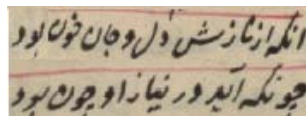 انکه از نازش دل و جان خون بود
چونکه آید در نیاز او چون بود